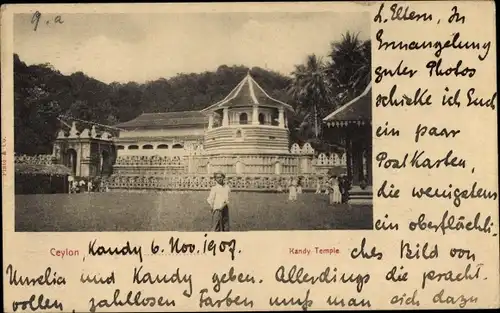 9.a
L. Eltern, In
Ermangelung
guter Photos
schicke ich Euch
ein paar
Postkarten,
die wenigstens
ein oberflächli-
Ceylon Kandy 6. Nov. 1907. Kandy Temple ches Bild von
Urelia und Kandy geben. Allerdings die pracht-
vollen, zahllosen Farben muß man sich dazu
Plâté & Co.